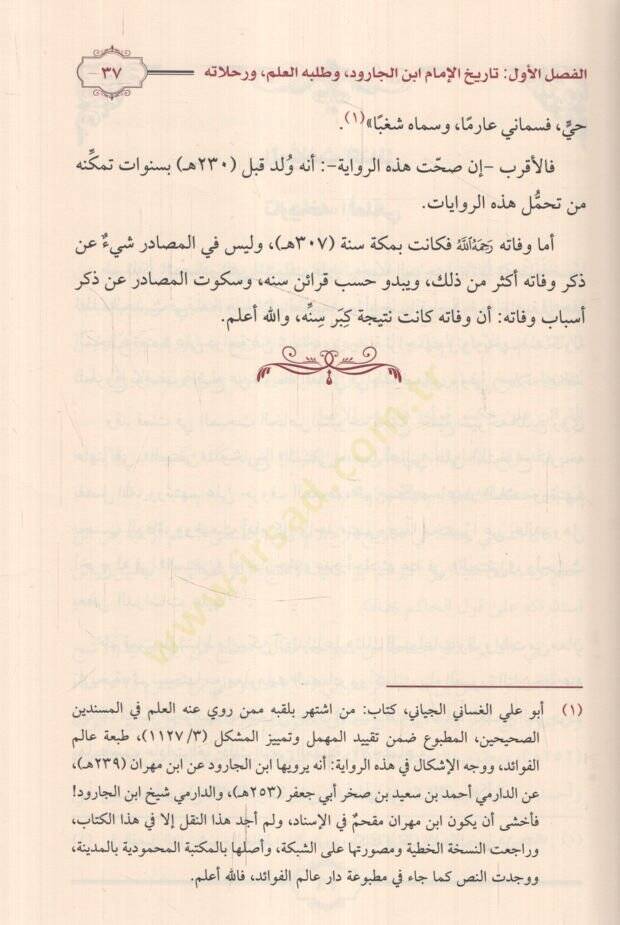 الفصل الأول: تاريخ الإمام ابن الجارود، وطلبه العلم، ورحلاته
٣٧
حيٌّ، فسماني عارمًا، وسماه شغبًا»(١).
فالأقرب -إن صحّت هذه الرواية-: أنه وُلد قبل (٢٣٠هـ) بسنوات تمكنِّه
من تحمُّل هذه الروايات.
أما وفاته رَحِمَهُ ٱللَّهُ فكانت بمكة سنة (٣٠٧هـ)، وليس في المصادر شيءٌ عن
ذكر وفاته أكثر من ذلك، ويبدو حسب قرائن سنه، وسكوت المصادر عن ذكر
أسباب وفاته: أن وفاته كانت نتيجة كِبَر سِنِّه، والله أعلم.
www.irsad.com.tr
(١) أبو علي الغساني الجياني، كتاب: من اشتهر بلقبه ممن روي عنه العلم في المسندين
الصحيحين، المطبوع ضمن تقييد المهمل وتمييز المشكل (٣/ ١١٢٧)، طبعة عالم
الفوائد، ووجه الإشكال في هذه الرواية: أنه يرويها ابن الجارود عن ابن مهران (٢٣٩هـ)،
عن الدارمي أحمد بن سعيد بن صخر أبي جعفر (٢٥٣هـ)، والدارمي شيخ ابن الجارود!
فأخشى أن يكون ابن مهران مقحمٌ في الإسناد، ولم أجد هذا النقل إلا في هذا الكتاب،
وراجعت النسخة الخطية ومصورتها على الشبكة، وأصلها بالمكتبة المحمودية بالمدينة،
ووجدت النص كما جاء في مطبوعة دار عالم الفوائد، فالله أعلم.